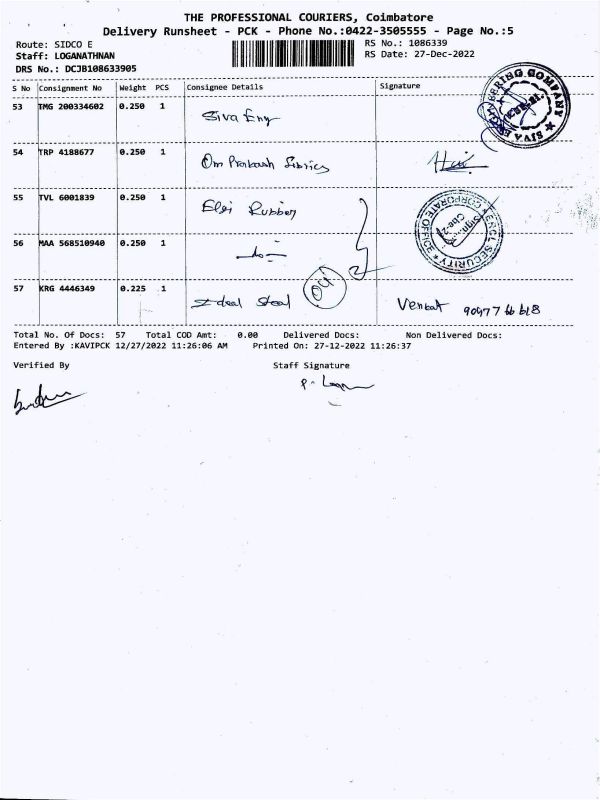 THE PROFESSIONAL COURIERS, Coimbatore
Delivery Runsheet - PCK - Phone No.:0422-3505555 - Page No.:5
Route: SIDCO E
RS No.: 1086339
Staff: LOGANATHNAN
RS Date: 27-Dec-2022
DRS No.: DCJB108633905
S No Consignment No Weight PCS Consignee Details Signature
53 TMG 200334602 0.250 1 Siva Eng
54 TRP 4188677 0.250 1 Om Prakash
55 TVL 6001839 0.250 1 Elgi Rubber
56 MAA 568510940 0.250 1
57 KRG 4446349 0.225 1 Ideal Steel 04 Venkat
SIVA COMPANY
CORPORATE OFFICE SECURITY
Total No. Of Docs: 57 Total COD Amt: 0.00 Delivered Docs: Non Delivered Docs:
Entered By :KAVIPCK 12/27/2022 11:26:06 AM Printed On: 27-12-2022 11:26:37
Verified By Staff Signature